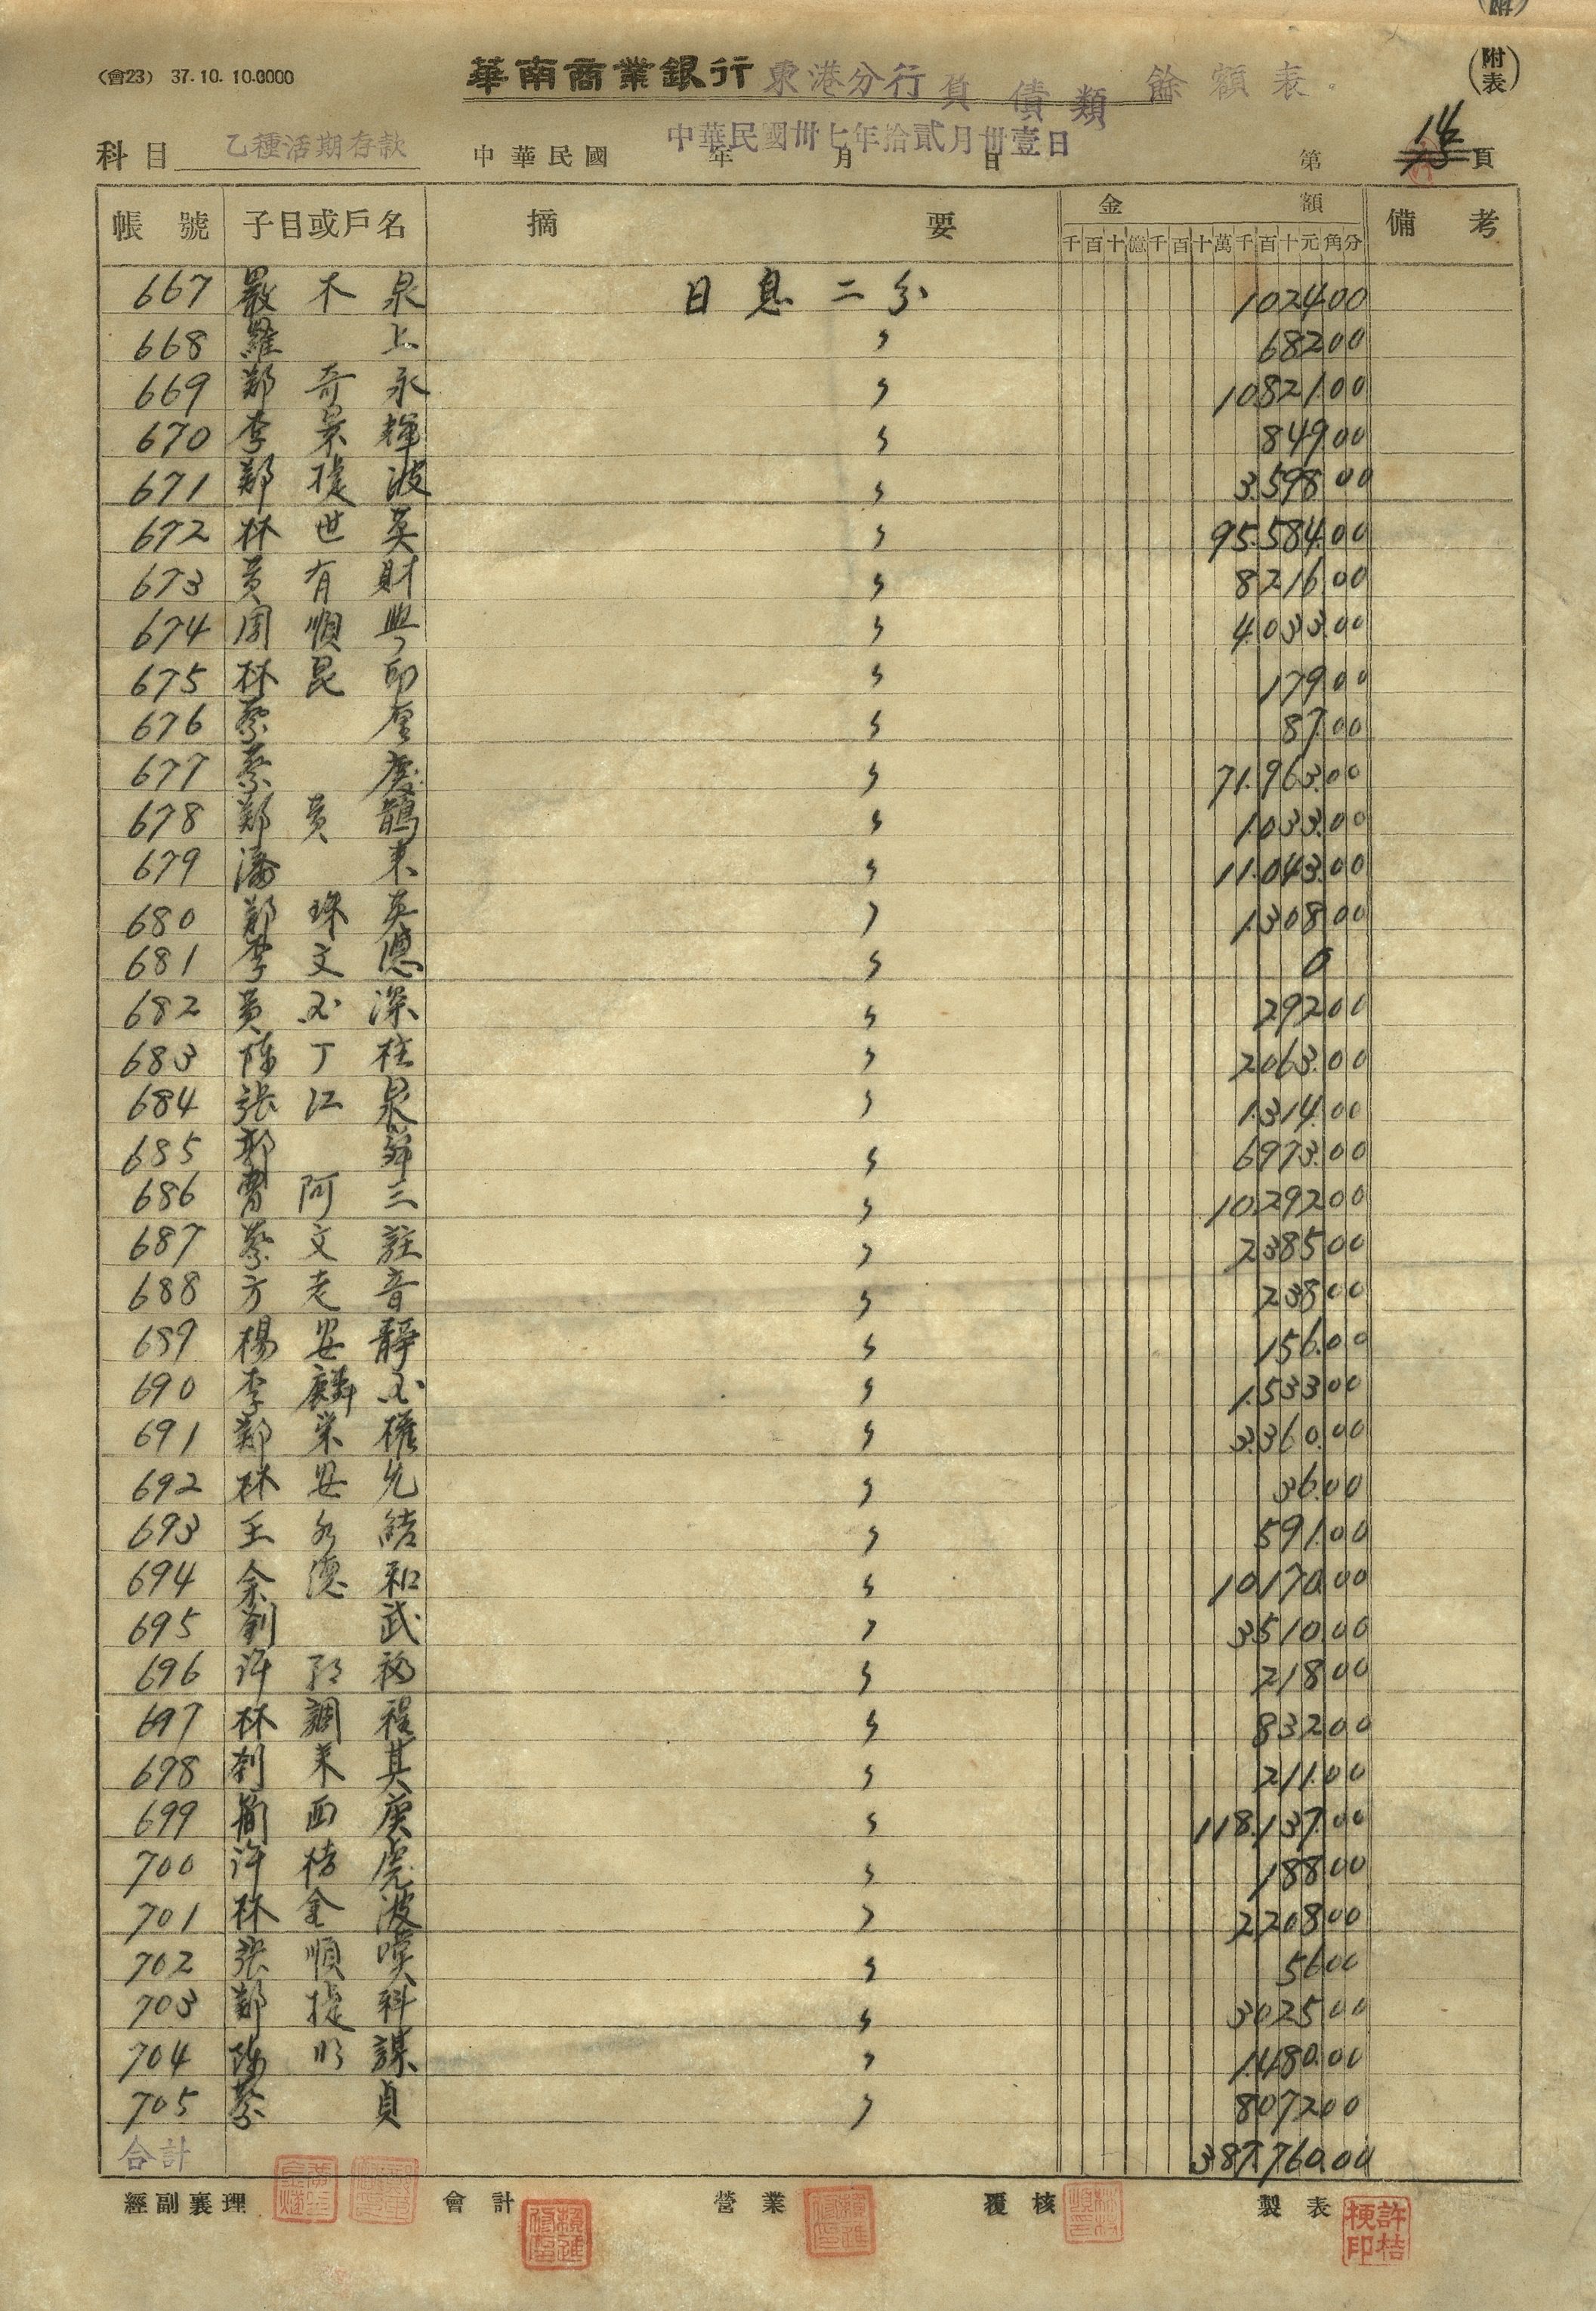 (附表)
(會23) 37.10. 10.0000 華南商業銀行 東港分行 負債類 餘額表
科目 乙種活期存款 中華民國 年 月 日 中華民國卅七年拾貳月卅壹日 第 14 頁
帳號 子目或戶名 摘要 金額 備考
千百十億千百十萬千百十元角分
667 嚴木泉 日息二分 1024.00
668 羅上 〃 682.00
669 鄭奇永 〃 10821.00
670 李景輝 〃 849.00
671 鄭捷波 〃 3.598.00
672 林世英 〃 95.584.00
673 黃有財 〃 8216.00
674 周順興 〃 4.033.00
675 林昆 〃 179.00
676 蔡 〃 87.00
677 蔡慶 〃 71.963.00
678 鄭黃鵲 〃 1.033.00
679 潘東 〃 11.043.00
680 鄭珠英 〃 1.308.00
681 李文德 〃 0
682 黃水深 〃 292.00
683 陳丁柱 〃 2063.00
684 張江泉 〃 1.314.00
685 郭 〃 6973.00
686 曹阿三 〃 10.292.00
687 蔡文註 〃 2385.00
688 方老音 〃 238.00
689 楊安靜 〃 156.00
690 李麟水 〃 1.533.00
691 鄭榮權 〃 3.360.00
692 林安先 〃 36.00
693 王永結 〃 591.00
694 余德和 〃 10.170.00
695 劉武 〃 3510.00
696 許 〃 218.00
697 林調程 〃 832.00
698 劉來其 〃 211.00
699 簡西庚 〃 118.137.00
700 許桔虎 〃 188.00
701 林金波 〃 2208.00
702 張順 〃 56.00
703 鄭捷科 〃 3025.00
704 陳明謀 〃 1.480.00
705 蔡貞 〃 8072.00
合計 387.760.00
經副襄理 會計 營業 覆核 製表 許桔梗印